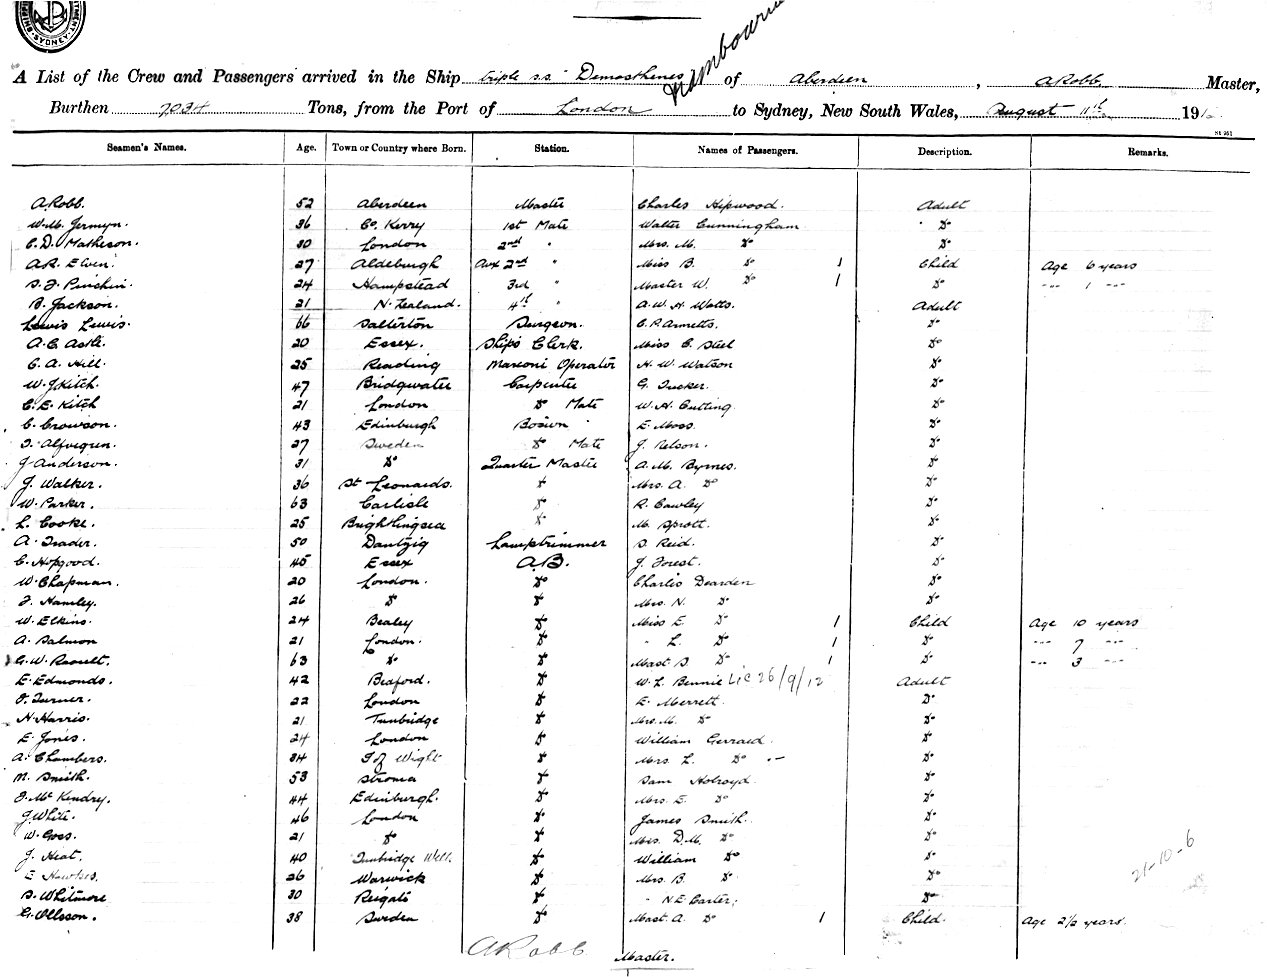 SYDNEY
A List of the Crew and Passengers arrived in the Ship triple s.s. Demosthenes of Aberdeen, A Robb. Master,
Burthen 7034 Tons, from the Port of London to Sydney, New South Wales, August 11th 191
St 261
Seamen's Names. Age. Town or Country where Born. Station. Names of Passengers. Description. Remarks.
A Robb. 52 Aberdeen Master Charles Hipwood. Adult
W. M. Jermyn. 36 Co. Kerry 1st Mate Walter Cunningham Do
C. D. Matheson. 30 London 2nd " Mrs. M. Do Do
A. R. Elven. 27 Aldeburgh Aux 2nd " Miss B. Do 1 Child Age 6 years
24 Hampstead 3rd " Master W. Do 1 Do " 1 "
B. Jackson. 21 N. Zealand. 4th " A. W. H. Watts. Adult
Lewis Lewis. 66 Salterton Surgeon. Do
20 Essex. Ships Clerk. Miss C. Steel Do
C. A. Hill. 25 Reading Marconi Operator H. W. Watson Do
W. J. Kitch. 47 Bridgwater Carpenter G. Tucker. Do
C. E. Kitch 21 London Do Mate W. H. Cutting. Do
C. Crowson. 43 Edinburgh Bosun E. Moss. Do
27 Sweden Do Mate Do
J Anderson. 31 Do Quarter Master A. M. Byrnes. Do
J. Walker. 36 St Leonards. Do Mrs. A. Do Do
W. Parker. 63 Carlisle Do R. Cawley Do
L. Cooke. 25 Brightlingsea Do M. Sprott. Do
A. Trader. 50 Dantzig Lamptrimmer D. Reid. Do
C. Hopgood. 45 Essex A.B. J. Forest. Do
W. Chapman. 20 London. Do Charles Dearden Do
J. Hamley. 26 Do Do Mrs. N. Do Do
W. Elkins. 24 Bealey Do Miss E. Do 1 Child Age 10 years
A. Salmon 21 London. Do " L. Do 1 Do " 7 "
G. W. 63 Do Do Mast D Do 1 Do " 3 "
E. Edmonds. 42 Bedford. Do W. L. Bennie Lic 26/9/12 Adult
J. Turner. 22 London Do E. Merrett. Do
H. Harris. 21 Tunbridge Do Mrs. M. Do Do
E. Jones. 24 London Do William Gerraid. Do
A. Chambers. 34 I of Wight Do Mrs. L. Do Do
M. Smith. 53 Stroma Do Sam Holroyd. Do
J. McKendry. 44 Edinburgh. Do Mrs. E. Do Do
J. White. 46 London Do James Smith. Do
W. Goss. 21 Do Do Mrs. D. M. Do Do
J. Heat. 40 Tunbridge Well. Do William Do Do
E Hawkes. 26 Warwick Do Mrs. B. Do Do
D. Whitmore 30 Reigate Do " N. E. Carter. Do
G. Ollsson. 38 Sweden Do Mast. A. Do 1 Child. Age 2½ years.
21-10-6
A Robb
Master.